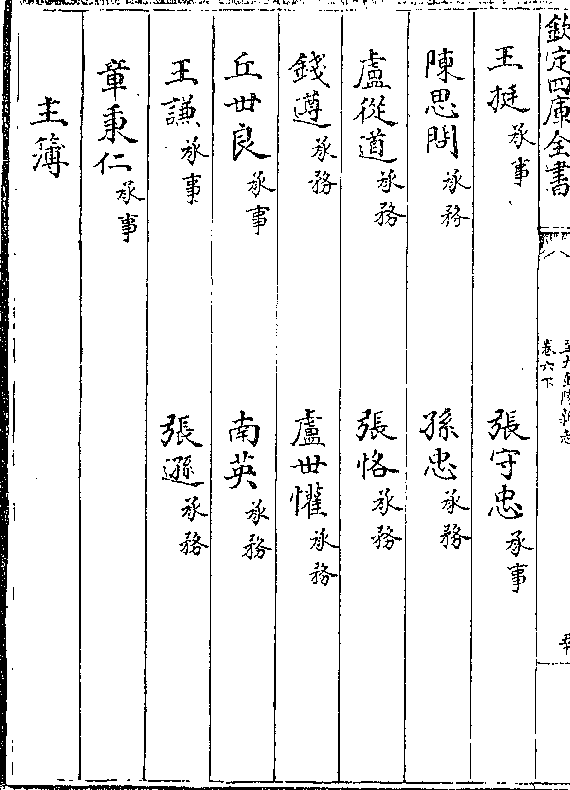 欽定四庫全書
至大金陵新志
卷六下
王挺承事　張守忠承事
陳思問承務　孫忠承務
盧從道承務　張恪承務
錢遵承務　盧世懽承務
丘世良承事　南英承務
王謙承事　張遜承務
章秉仁承事
主簿